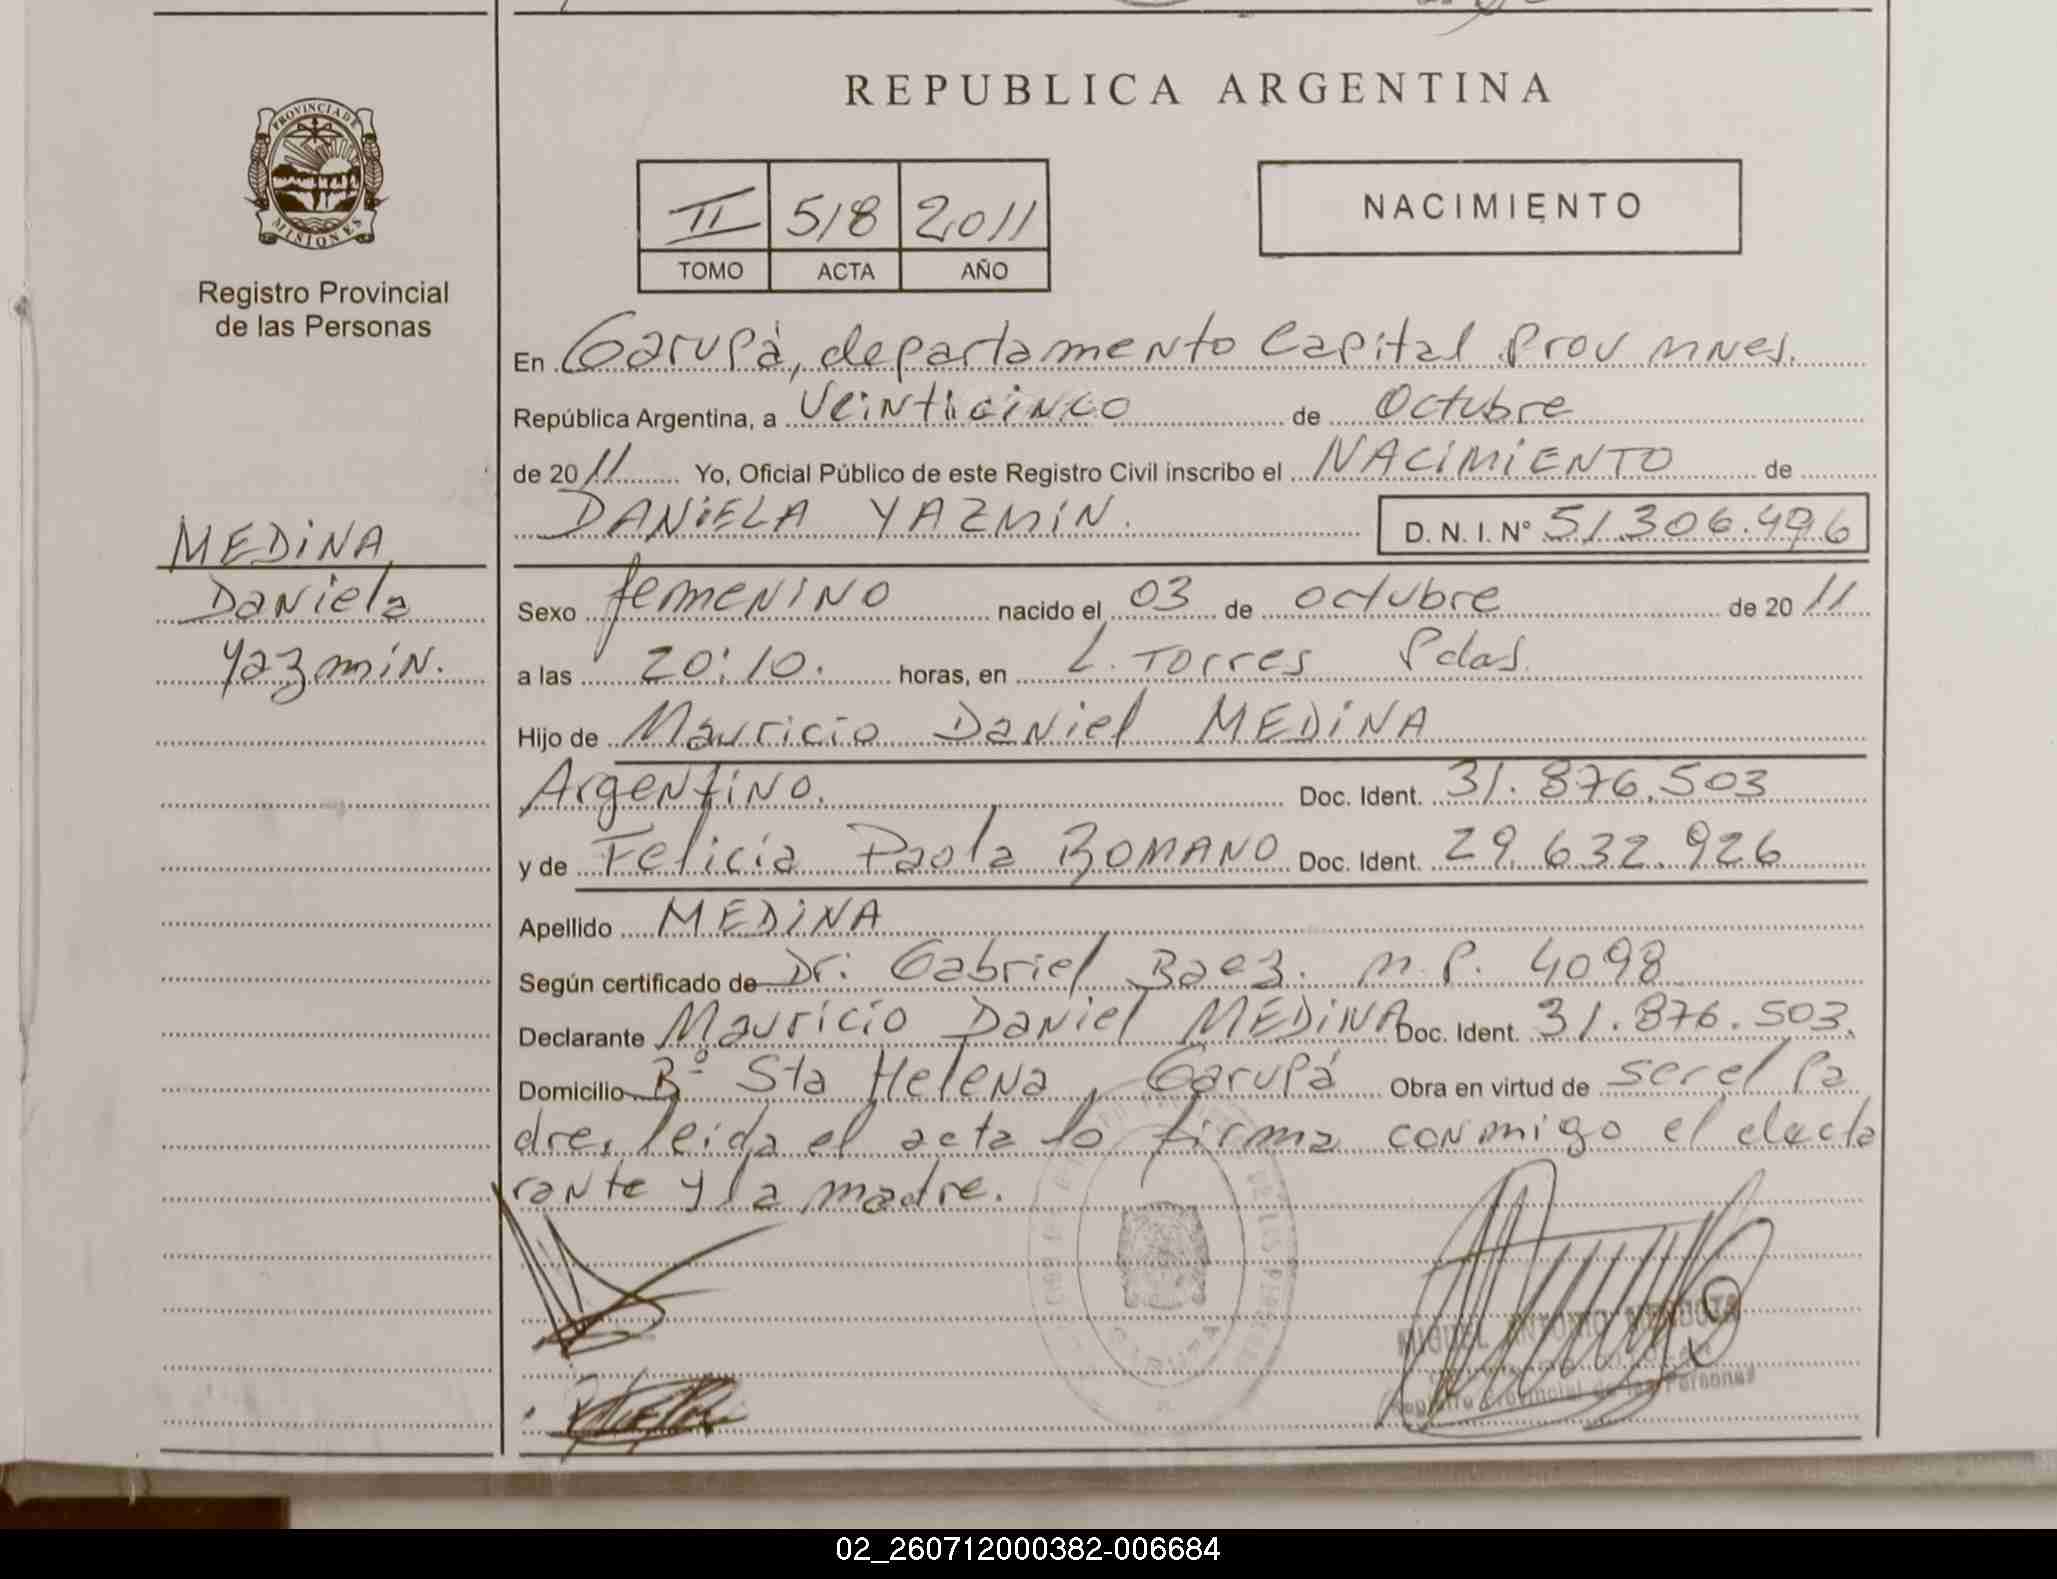 REPUBLICA ARGENTINA
PROVINCIA DE MISIONES
Registro Provincial
de las Personas
II 518 2011
TOMO ACTA AÑO
NACIMIENTO
En Garupá, departamento Capital Prov Mnes.
República Argentina, a Veinticinco de Octubre
de 2011 Yo, Oficial Público de este Registro Civil inscribo el NACIMIENTO de
DANIELA YAZMIN. D. N. I. N° 51.306.496
MEDINA
Daniela
Yazmin.
Sexo femenino nacido el 03 de octubre de 2011
a las 20:10. horas, en L. Torres Pdas.
Hijo de Mauricio Daniel MEDINA
Argentino. Doc. Ident. 31.876.503
y de Felicia Paola ROMANO Doc. Ident. 29.632.926
Apellido MEDINA
Según certificado de Dr. Gabriel Baez. M.P. 4098
Declarante Mauricio Daniel MEDINA Doc. Ident. 31.876.503.
Domicilio Bº Sta Helena, Garupá Obra en virtud de ser el Pa
dre, leida el acta lo firma conmigo el decla
rante y la madre.
MIGUEL ANTONIO MENDOZA
Registro Provincial de las Personas
GARUPA
02_260712000382-006684